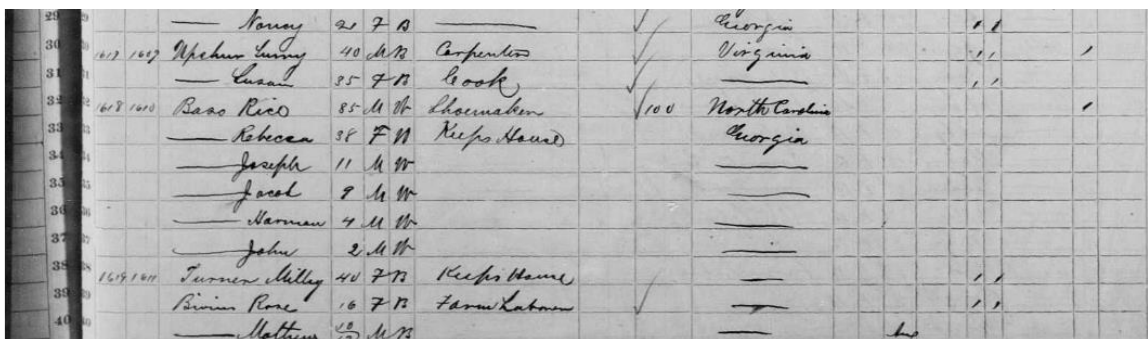 29 — Nancy 21 F B — Georgia 1 1
30 30 1617 1609 Upshur 40 M B Carpenter ✓ Virginia 1 1 1
31 31 — Susan 35 F B Cook ✓ — 1 1
32 32 1618 1610 Bass Rico 85 M W Shoemaker ✓ 100 North Carolina 1
33 33 — Rebecca 38 F W Keeps House Georgia
34 34 — Joseph 11 M W —
35 35 — Jacob 9 M W —
36 36 — Harman 4 M W —
37 37 — John 2 M W —
38 38 1619 1611 Turner Milley 40 F B Keeps House — 1 1
39 39 Bivins Rose 16 F B Farm Laborer ✓ — 1 1
40 40 — Mathew 10/12 M B —